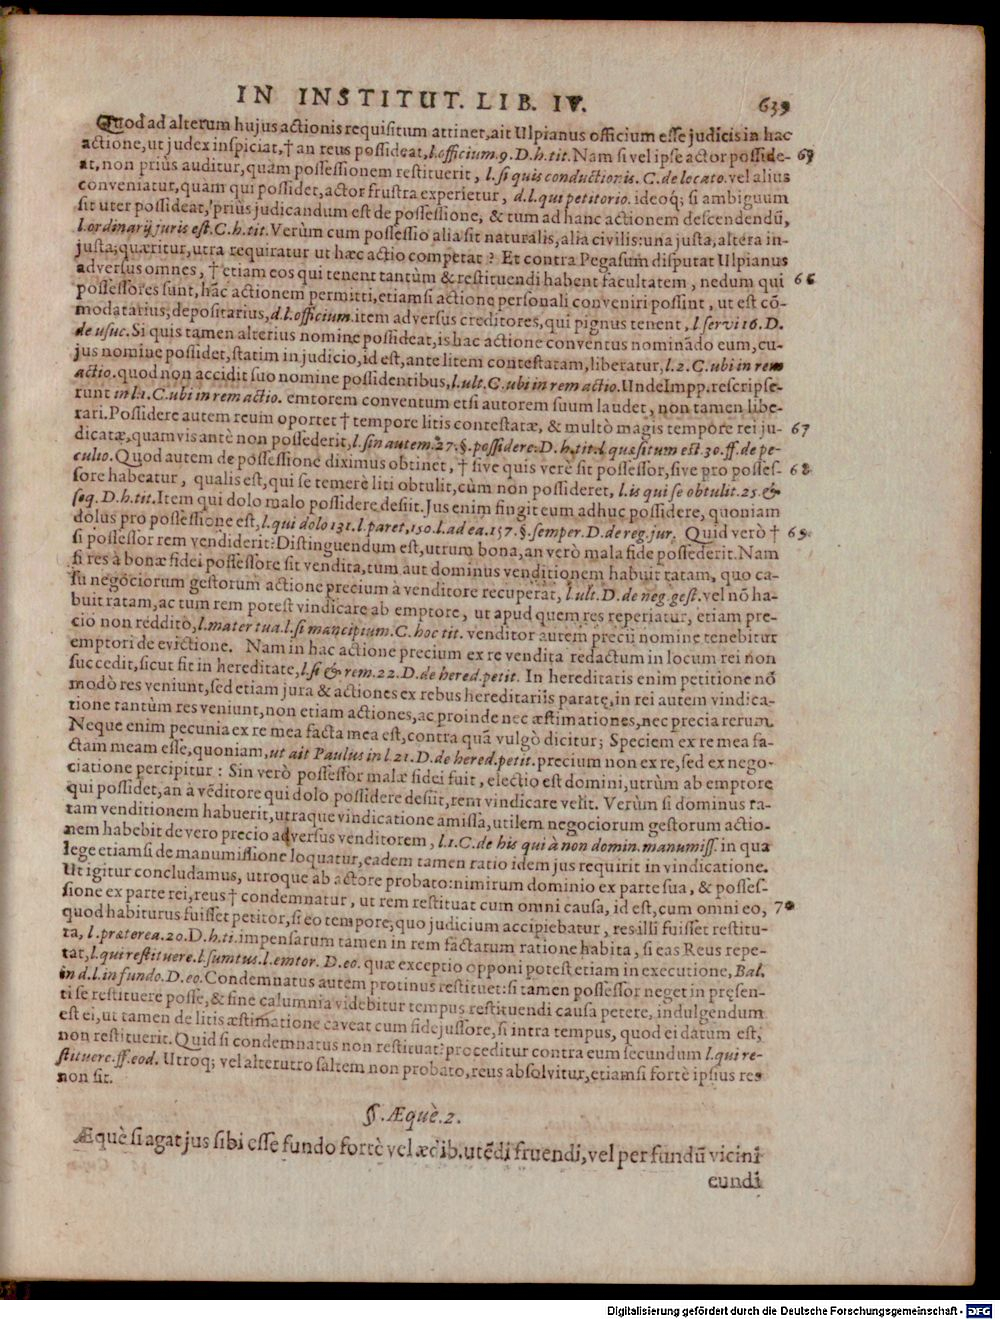 IN INSTITUT. LIB. IV. 639
Quod ad alterum hujus actionis requisitum attinet, ait Ulpianus officium esse judicis in hac
actione, ut judex inspiciat, † an reus possideat, l. officium. 9. D. h. tit. Nam si vel ipse actor posside- 65
at, non priùs auditur, quàm possessionem restituerit, l. si quis conductionis. C. de locato. vel alius
conveniatur, quam qui possidet, actor frustra experietur, d. l. qui petitorio. ideoq; si ambiguum
sit uter possideat, priùs judicandum est de possessione, & tum ad hanc actionem descendendũ,
l. ordinarij juris est. C. h. tit. Verùm cum possessio alia sit naturalis, alia civilis: una justa, altera in-
justa; quæritur, utra requiratur ut hæc actio competat? Et contra Pegasum disputat Ulpianus
adversus omnes, † etiam eos qui tenent tantùm & restituendi habent facultatem, nedum qui 66
possessores sunt, hãc actionem permitti, etiamsi actione personali conveniri possint, ut est cõ-
modatarius, depositarius, d. l. officium. item adversus creditores, qui pignus tenent, l. servi 16. D.
de usuc. Si quis tamen alterius nomine possideat, is hac actione conventus nominãdo eum, cu-
jus nomine possidet, statim in judicio, id est, ante litem contestatam, liberatur, l. 2. C. ubi in rem
actio. quod non accidit suo nomine possidentibus, l. ult. C. ubi in rem actio. Unde Impp. rescripse-
runt in l. 1. C. ubi in rem actio. emtorem conventum etsi autorem suum laudet, non tamen libe-
rari. Possidere autem reum oportet † tempore litis contestatæ, & multò magis tempore rei ju- 67
dicatæ, quamvis antè non possederit, l. sin autem. 27. §. possidere. D. h. tit. l. quæsitum est. 30. ff. de pe-
culio. Quod autem de possessione diximus obtinet, † sive quis verè sit possessor, sive pro posses- 68
sore habeatur, qualis est, qui se temerè liti obtulit, cùm non possideret, l. is qui se obtulit. 25. &
seq. D. h. tit. Item qui dolo malo possidere desiit. Jus enim fingit eum adhuc possidere, quoniam
dolus pro possessione est, l. qui dolo 131. l. paret, 150. l. ad ea. 157. §. semper. D. de reg. jur. Quid verò † 69
si possessor rem vendiderit? Distinguendum est, utrum bona, an verò mala fide possederit. Nam
si res à bonæ fidei possessore sit vendita, tum aut dominus venditionem habuit ratam, quo ca-
su negociorum gestorum actione precium à venditore recuperat, l. ult. D. de neg. gest. vel nõ ha-
buit ratam, ac tum rem potest vindicare ab emptore, ut apud quem res reperiatur, etiam pre-
cio non reddito, l. mater tua. l. si mancipium. C. hoc tit. venditor autem precii nomine tenebitur
emptori de evictione. Nam in hac actione precium ex re vendita redactum in locum rei non
succedit, sicut fit in hereditate, l. si & rem. 22. D. de hered. petit. In hereditatis enim petitione nõ
modò res veniunt, sed etiam jura & actiones ex rebus hereditariis paratę, in rei autem vindica-
tione tantùm res veniunt, non etiam actiones, ac proinde nec æstimationes, nec precia rerum.
Neque enim pecunia ex re mea facta mea est, contra quã vulgò dicitur; Speciem ex re mea fa-
ctam meam esse, quoniam, ut ait Paulus in l. 21. D. de hered. petit. precium non ex re, sed ex nego-
ciatione percipitur: Sin verò possessor malæ fidei fuit, electio est domini, utrùm ab emptore
qui possidet, an à vẽditore qui dolo possidere desiit, rem vindicare velit. Verùm si dominus ra-
tam venditionem habuerit, utraque vindicatione amissa, utilem negociorum gestorum actio-
nem habebit de vero precio adversus venditorem, l. 1. C. de his qui à non domin. manumiss. in qua
lege etiamsi de manumissione loquatur, eadem tamen ratio idem jus requirit in vindicatione.
Ut igitur concludamus, utroque ab actore probato: nimirum dominio ex parte sua, & posses-
sione ex parte rei, reus † condemnatur, ut rem restituat cum omni causa, id est, cum omni eo, 70
quod habiturus fuisset petitor, si eo tempore, quo judicium accipiebatur, res illi fuisset restitu-
ta, l. præterea. 20. D. h. ti. impensarum tamen in rem factarum ratione habita, si eas Reus repe-
tat, l. qui restituere. l. sumtus. l. emtor. D. eo. quæ exceptio opponi potest etiam in executione, Bal.
in d. l. in fundo. D. eo. Condemnatus autem protinus restituet: si tamen possessor neget in pręsen-
ti se restituere posse, & sine calumnia videbitur tempus restituendi causa petere, indulgendum
est ei, ut tamen de litis æstimatione caveat cum fidejussore, si intra tempus, quod ei datum est,
non restituerit. Quid si condemnatus non restituat? proceditur contra eum secundum l. qui re-
stituere. ff. eod. Utroq; vel alterutro saltem non probato, reus absolvitur, etiamsi fortè ipsius res
non sit.
§. Æquè. 2.
Æquè si agat jus sibi esse fundo fortè vel ædib. utẽdi fruendi, vel per fundũ vicini
eundi
Digitalisierung gefördert durch die Deutsche Forschungsgemeinschaft - DFG